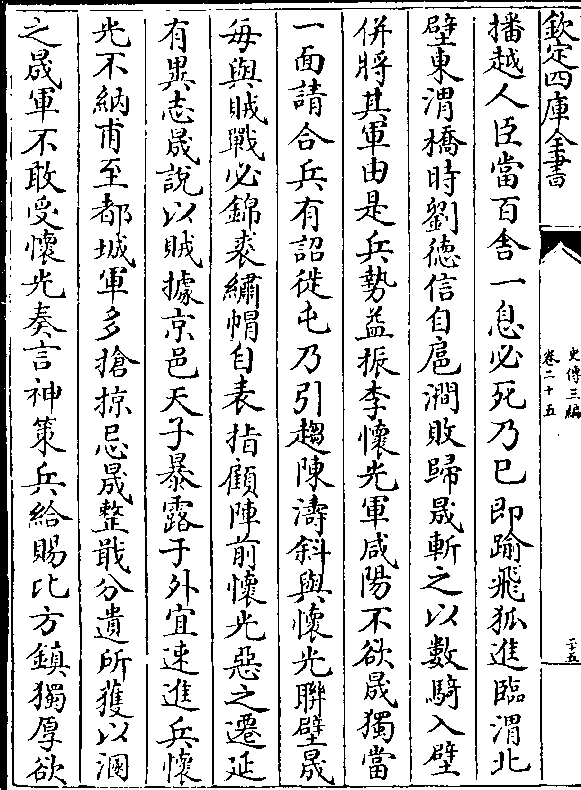 欽定四庫全書
史傳三編
卷二十五
二十五
播越人臣當百舍一息必死乃已即踰飛狐進臨渭北
壁東渭橋時劉德信自扈澗敗歸晟斬之以數騎入壁
併將其軍由是兵勢益振李懷光軍咸陽不欲晟獨當
一面請合兵有詔徙屯乃引趨陳濤斜與懷光聯壁晟
每與賊戰必錦裘繡帽自表指顧陣前懷光惡之遷延
有異志晟說以賊據京邑天子暴露于外宜速進兵懷
光不納甫至都城軍多搶掠忌晟整戢分遺所獲以溷
之晟軍不敢受懷光奏言神策兵給賜比方鎮獨厚欲